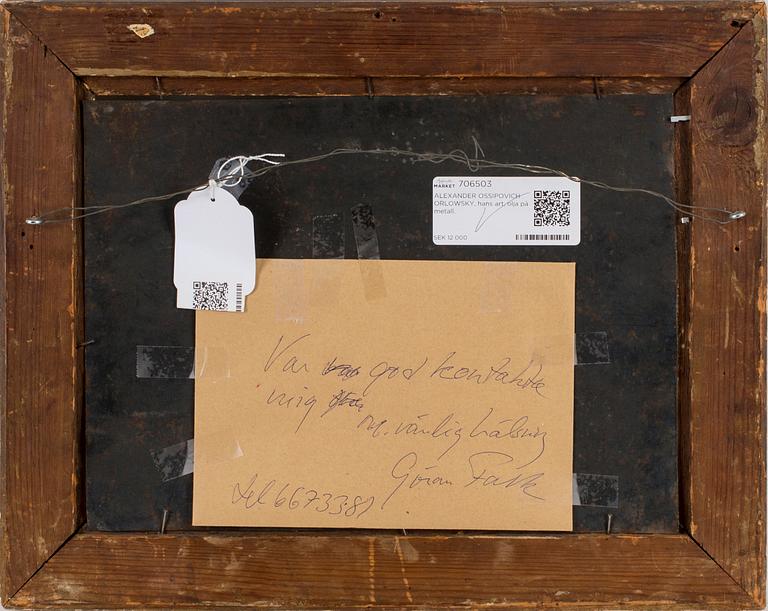 MARKET 706503
ALEXANDER OSSIPOVICH
ORLOWSKY, hans art, olja på
metall.
SEK 12 000
Var god kontakta
mig
m. vänlig hälsning
Göran Falk
tel 6673381